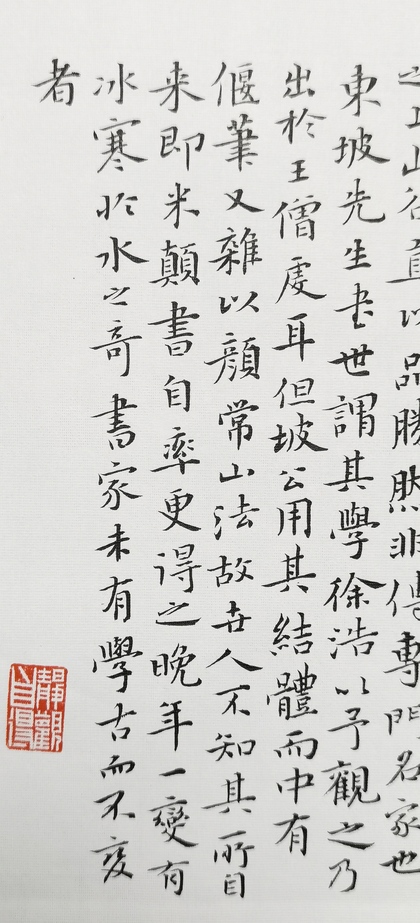 之上山谷直以品勝然非傳專門名家也
東坡先生書世謂其學徐浩以予觀之乃
出於王僧虔耳但坡公用其結體而中有
偃筆又雜以顏常山法故世人不知其所自
来即米顛書自率更得之晚年一變有
冰寒於水之奇書家未有學古而不变
者
靜觀自得